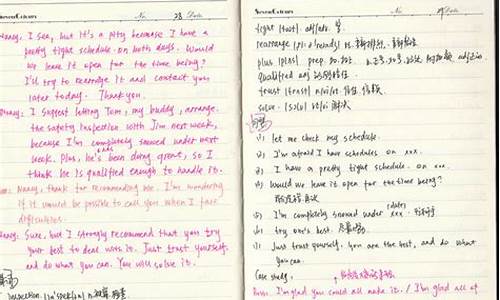 SevenColours No. 28 Date
Nancy, I see, but it's a pity because I have a
pretty tight schedule on both days. Would
we leave it open for the time being?
I'll try to rearrange it and contact you
later today. Thank you.
I suggest letting Tom, my buddy, arrange
the safety inspection with Jim next week,
because I'm completely snowed under next
week. Plus, he's been doing great, so I
think he is qualified enough to handle it.
Nancy, thank for recommending me. I'm wondering
if it would be possible to call you when I face
difficulties.
Nancy: Sure, but I strongly recommend that you try
your best to deal with it. Just trust yourself,
and do what you can. You will solve it.
inspection
SevenColours No. Date
tight [taɪt] adj/adv. 紧
rearrange
plus [plʌs] prep.
qualified adj
trust [trʌst] n/vi/vt 信任
solve [sɒlv] vt/vi 解决
(1) let me check my schedule.
(2) I'm afraid I have schedules on xxx.
(3) I have a pretty tight schedule on xxx.
(4) Would we leave it open for the time being?
(5) I'm completely snowed under xxx.
(date)
(6) try one's best.
(7) Just trust yourself. You are the best, and do what
you can.
Case study.
Boss: I'm glad you could all make it. / I'm glad all of